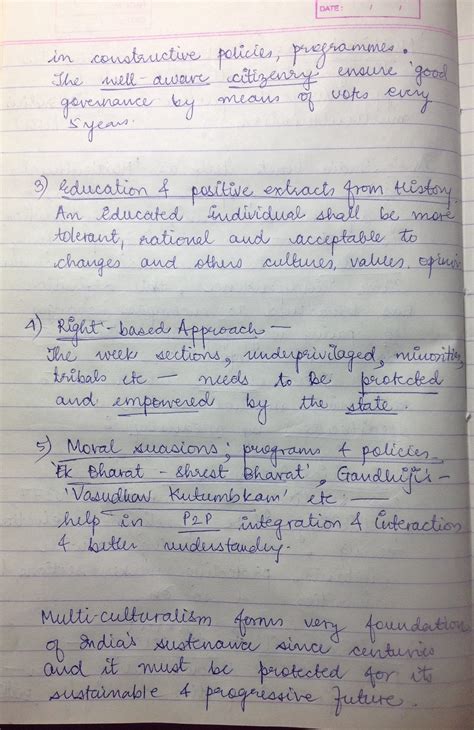 DATE: / /
in constructive policies, programmes.
The well-aware citizenry ensure 'good
governance by means of vote every
5 years.
3) Education & positive extracts from History
An Educated Individual shall be more
tolerant, rational and acceptable to
changes and others cultures, values.
4) Right-based Approach —
The week sections, underprivilaged, minorities,
tribals etc — needs to be protected
and empowered by the state.
5) Moral suasions; programs & policies
'Ek Bharat - Shrest Bharat', Gandhiji's -
'Vasudhav Kutumbkam' etc —
help in P2P integration & Interaction
& better understanding.
Multi-culturalism forms very foundation
of India's sustenance since centuries
and it must be protected for its
sustainable & progressive future.